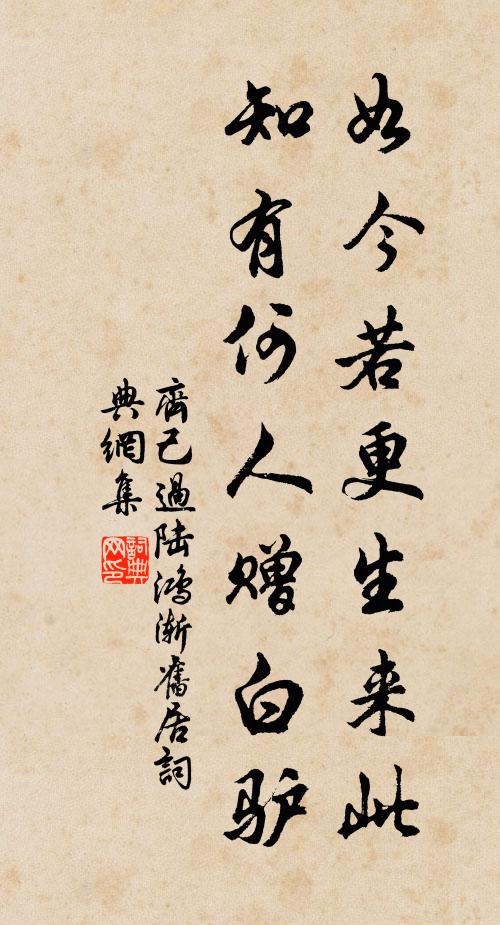 如今若更生来此
知有何人赠白驴
齊己過陆鴻漸舊居詞
典網集
詞典
网印